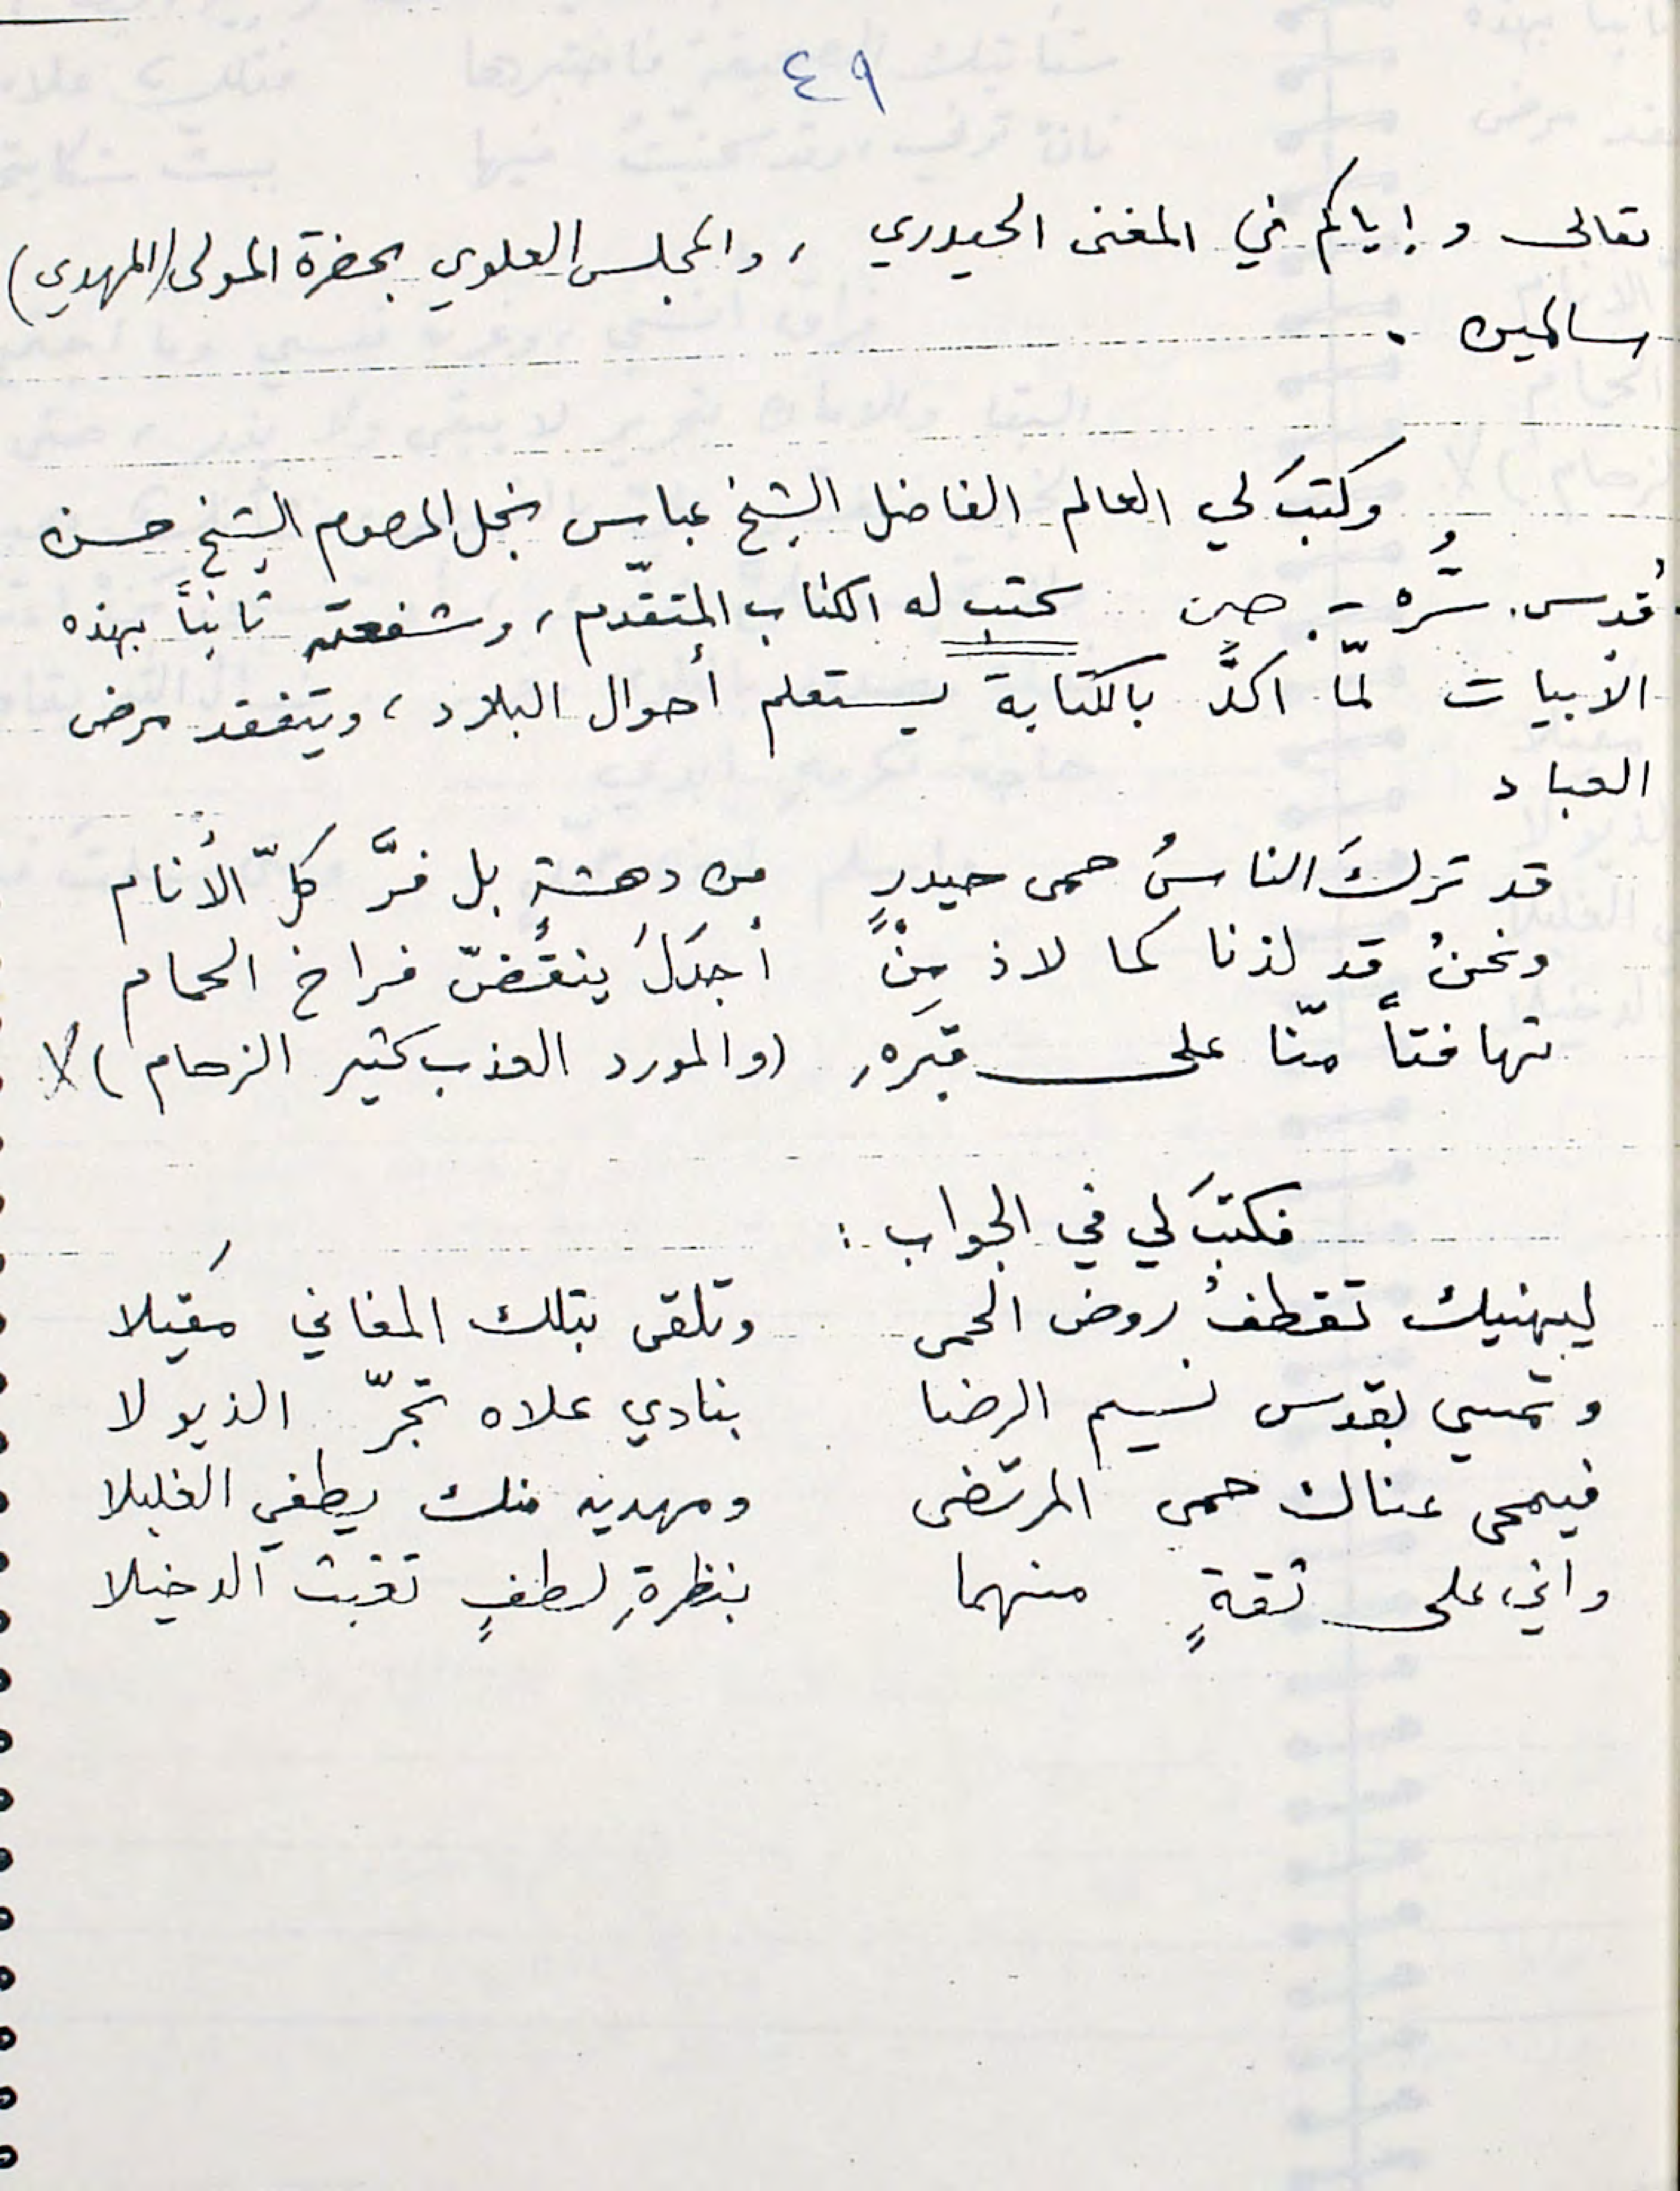 ٤٩
تعالى و إياكم في المغنى الحيدري ، والمجلس العلوي بحضرة المولى (المهدي)
سالمين .
وكتبَ لي العالم الفاضل الشيخ عباس نجل المرحوم الشيخ حسن
قُدس سُّره - حين كتب له الكتاب المتقدّم ، وشفعته ثانياً بهذه
الأبيات لمّا اكدَّ بالكتابة يستعلم أحوال البلاد ، ويتفقد مرض
العباد
قد تركَ الناسُ حمى حيدرٍ من دهشةٍ بل فرَّ كلّ الأنام
ونحنُ قد لذنا كما لاذ مِنْ أجدَلَ ينقُضّ فراخ الحمام
تهافتاً منّا على قبَرهِ (والمورد العذب كثير الزحام)
فكتبَ لي في الجواب :
ليهنيك تقطفُ روض الحمى وتلقى بتلك المغاني مَقيلا
وتمسي بقدس نسيم الرضا بنادي علاه تجرّ الذيولا
فيمحى عناك حمى المرتضى ومهديه منك يطفي الغليلا
واني على ثقةٍ منهما بنظرةِ لطفٍ تغيث الدخيلا